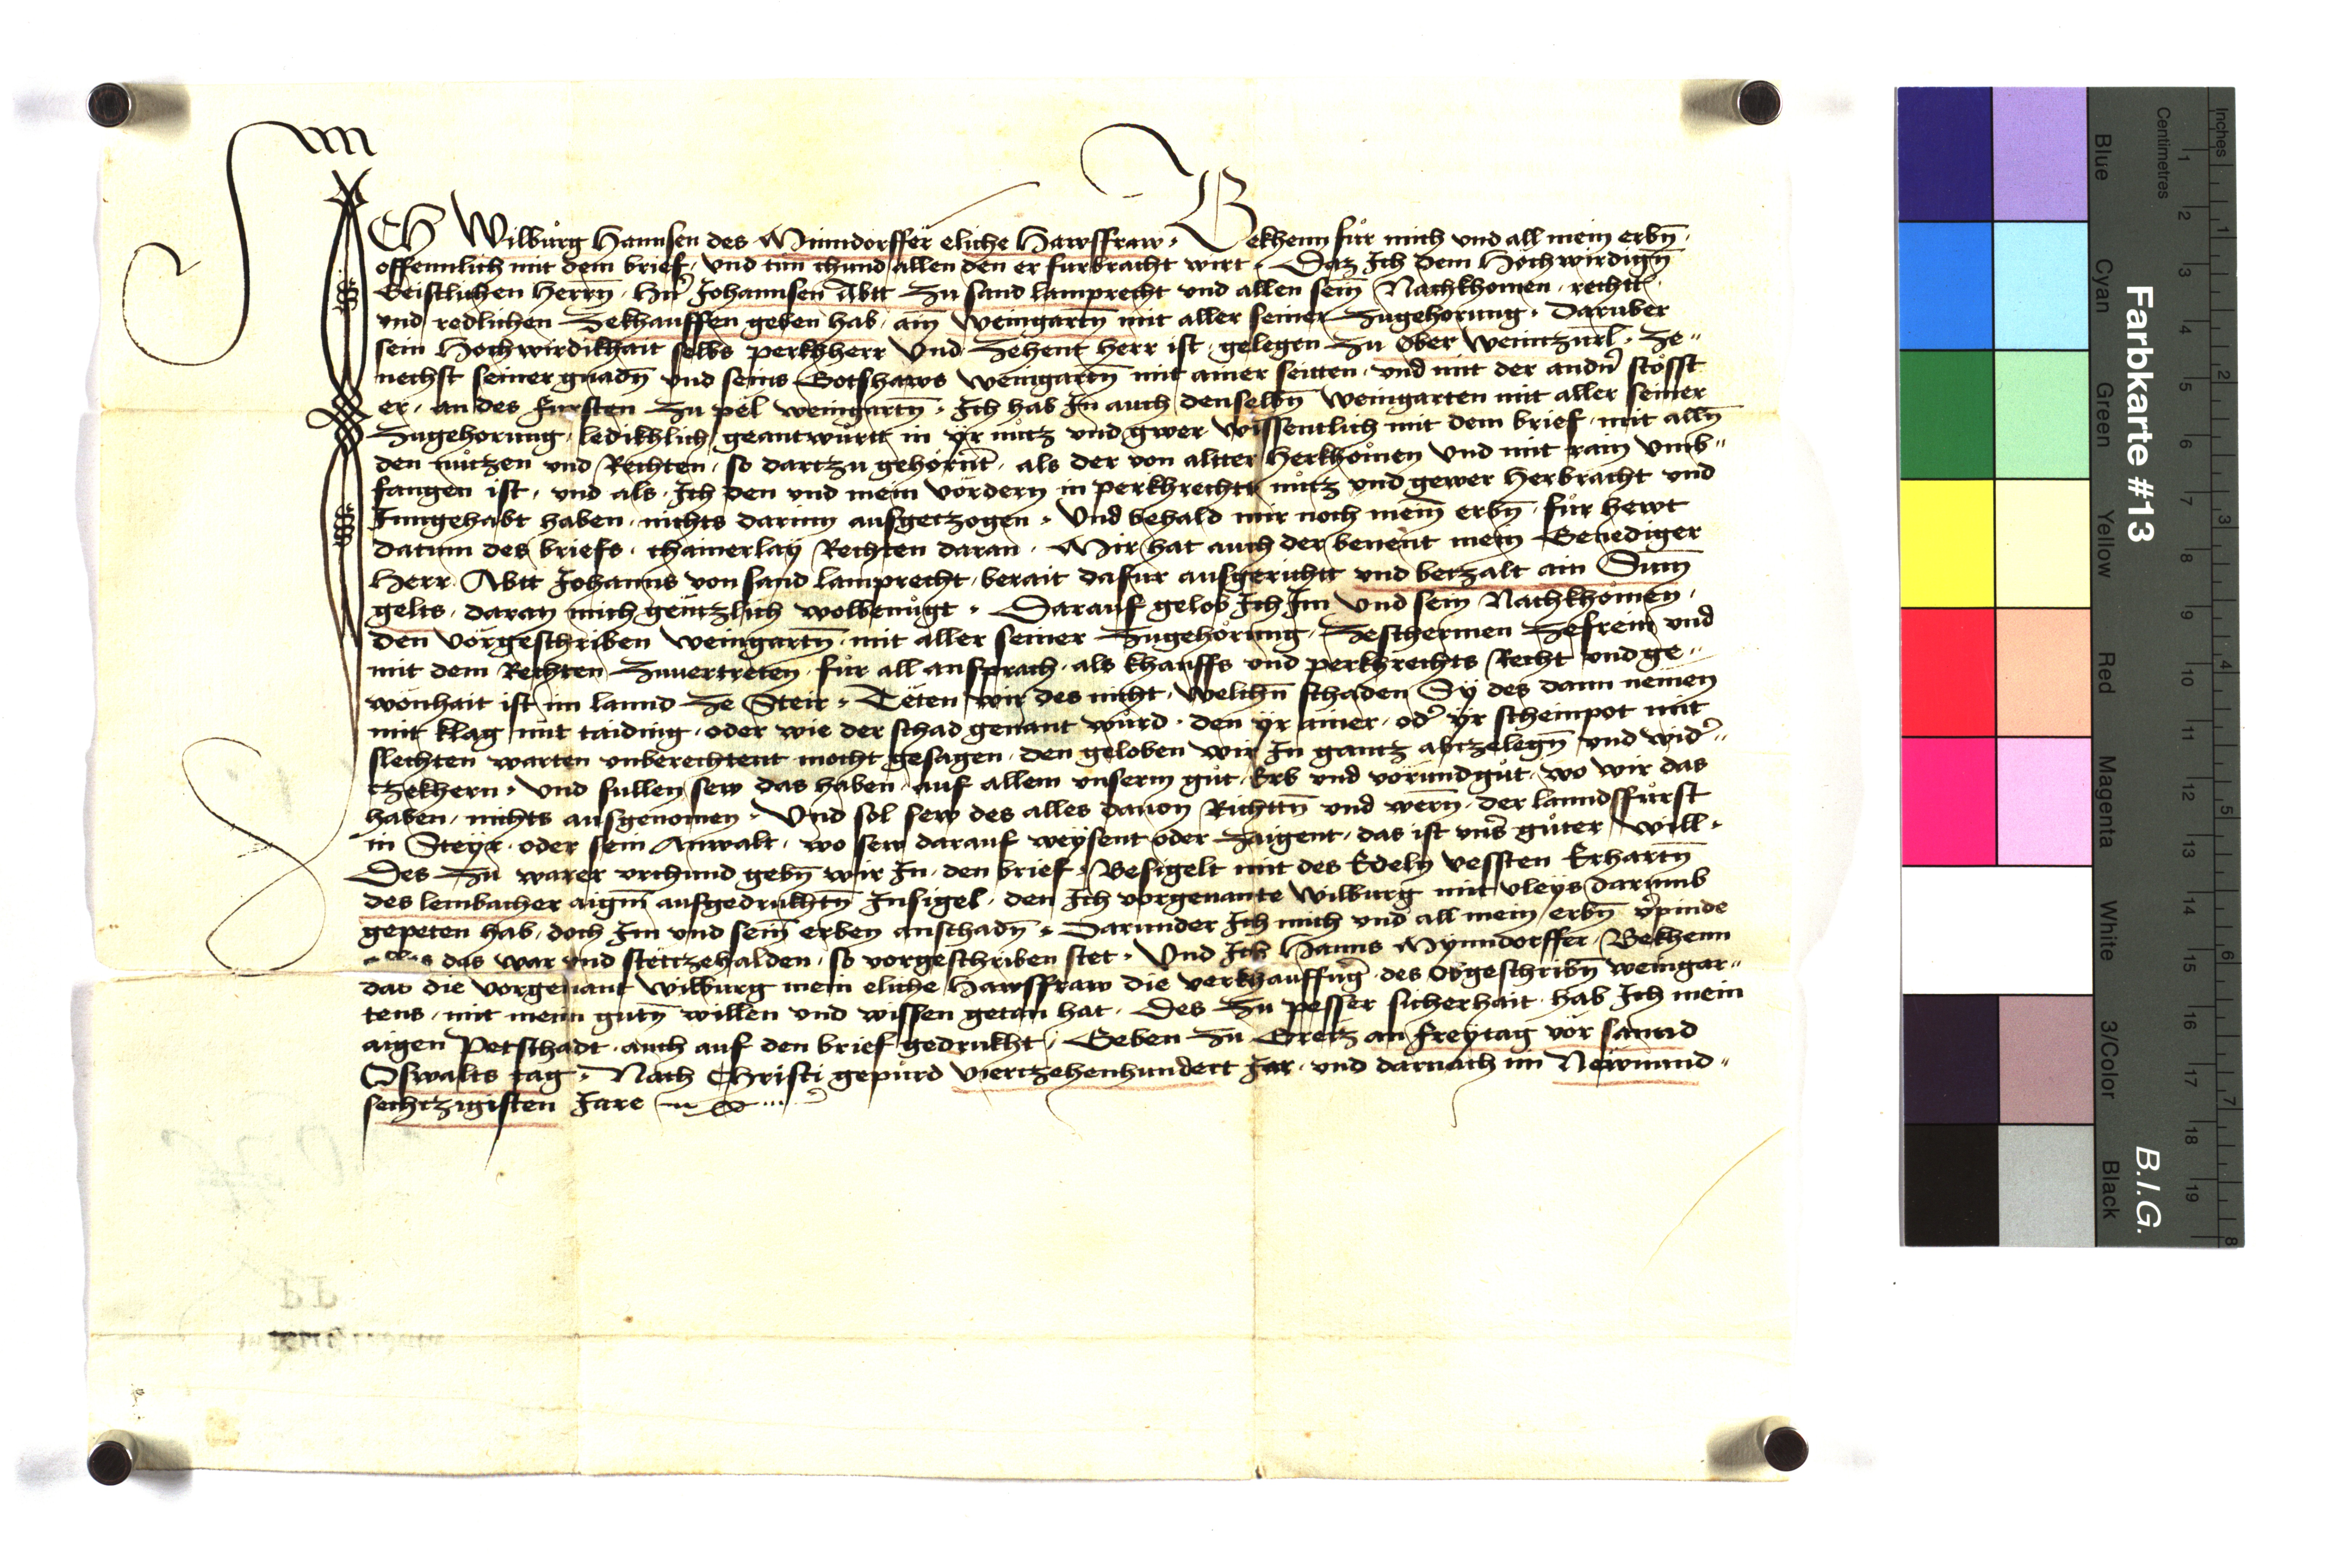 ICH Wilburg Hannsen des Minndorffer eliche Hawsfraw, Bekhenn für mich und all mein erbn̄,
offennlich mit dem brief, und tun chund allen den er furbracht wirt, Daz Ich dem Hochwirdign̄
Geistlichen Herrn̄, Hn̄ Johannsen Abtt Zu sand lamprecht und allen sein̄ Nachkhomen, rechtt
und redlichen Zekhauffen geben hab, ain weingartn̄ mit aller seiner Zugehorung, Daruber
sein Hochwirdikhait selbs perkhherr Und Zehent herr ist, gelegen Zu Ober weintzurl, Ze„
nechst seiner gnadn̄ und seins Gotshaws weingartn̄ mit ainer seitten, und mit der andn̄ stosst
er, an des fursten Zu pel weingartn̄, Ich hab In auch denselbn̄ weingarten mit aller seiner
Zugehorung, ledikhlich geantwurtt in yr nutz und gwer wissentlich mit dem brief, mit alln̄
den nutzen und Rechten, so dartzu gehornt, als der von altter Herkhomen Und mit rain Umb„
fangen ist, und als Ich den und mein vordern in perkhrechts nutz und gewer Herbracht und
Inngehabt haben, nichts darinn ausgetzogen, Und behald mir noch mein̄ erbn̄, für hewt
datum des briefs, chainerlay Rechten daran, Mir hat auch der benent mein Genediger
Herr Abtt Johanns von sand lamprecht, berait dafur ausgerichtt und betzalt ain Sum̄
gelts, daran mich gentzlich wolbenugt, Darauf gelob Ich Im und sein Nachkhomen,
den vorgeschriben weingartn̄, mit aller seiner Zugehorung, Zeschermen Zefreim und
mit dem Rechten Zuuertreten, für all ansprach, als khauffs und perkhrechts Recht und ge„
wonhait ist im lannd Ze Steir, Teten wir des nicht, welichn̄ schaden Sy des dann nemen
mit klag mit taiding, oder wie der schad genant wurd, den yr ainer, od' yr scheinpot mit
slechten warten unberechtent mocht gesagen, den geloben wir In gantz abtzelegn̄ und wid'„
tzekhern, und sullen sew das haben, auf allem unserm gut, Erb und vorundgut, wo wir das
haben, nichts ausgenomen, Und sol sew des alles dauon Richttn̄ und wern̄, der lanndsfürst
in Steyr, oder sein Anwalt, wo sew darauf weysent oder Zaigent, das ist uns' guter will,
Des Zu warer urchund gebn̄ wir In, den brief, Besigelt mit des Edeln vessten Erhartn̄
des lembacher aigm̄ aufgedrukhtn̄ Insigel, den Ich vorgenante Wilburg mit vleys darumb
gepeten hab, doch Im und sein̄ erben anschadn̄, Darunder Ich mich und all mein erbn̄ v'pinde
das war und stettzehalden, so vorgeschriben stet, Und Ich Hanns Mynndorffer, Bekhenn
das die vorgenant wilburg mein eliche Hawsfraw die verkhauffūg, des Obgeschribn̄ weingar„
tens, mit meinn gutn̄ willen und wissen getan hat, Des Zu pesser sicherhait, hab Ich mein
aigen Petschadt, auch auf den brief gedrukht, Geben Zu Gretz an freytag vor sannd
Oswalts tag, Nach Christi gepurd viertzehenhundert Jar, und darnach im Newnund„
sechtzigisten Jare
Farbkarte #13
B.I.G.
Centimetres
Inches
1 2 3 4 5 6 7 8 9 10 11 12 13 14 15 16 17 18 19
1 2 3 4 5 6 7 8
Blue Cyan Green Yellow Red Magenta White 3/Color Black